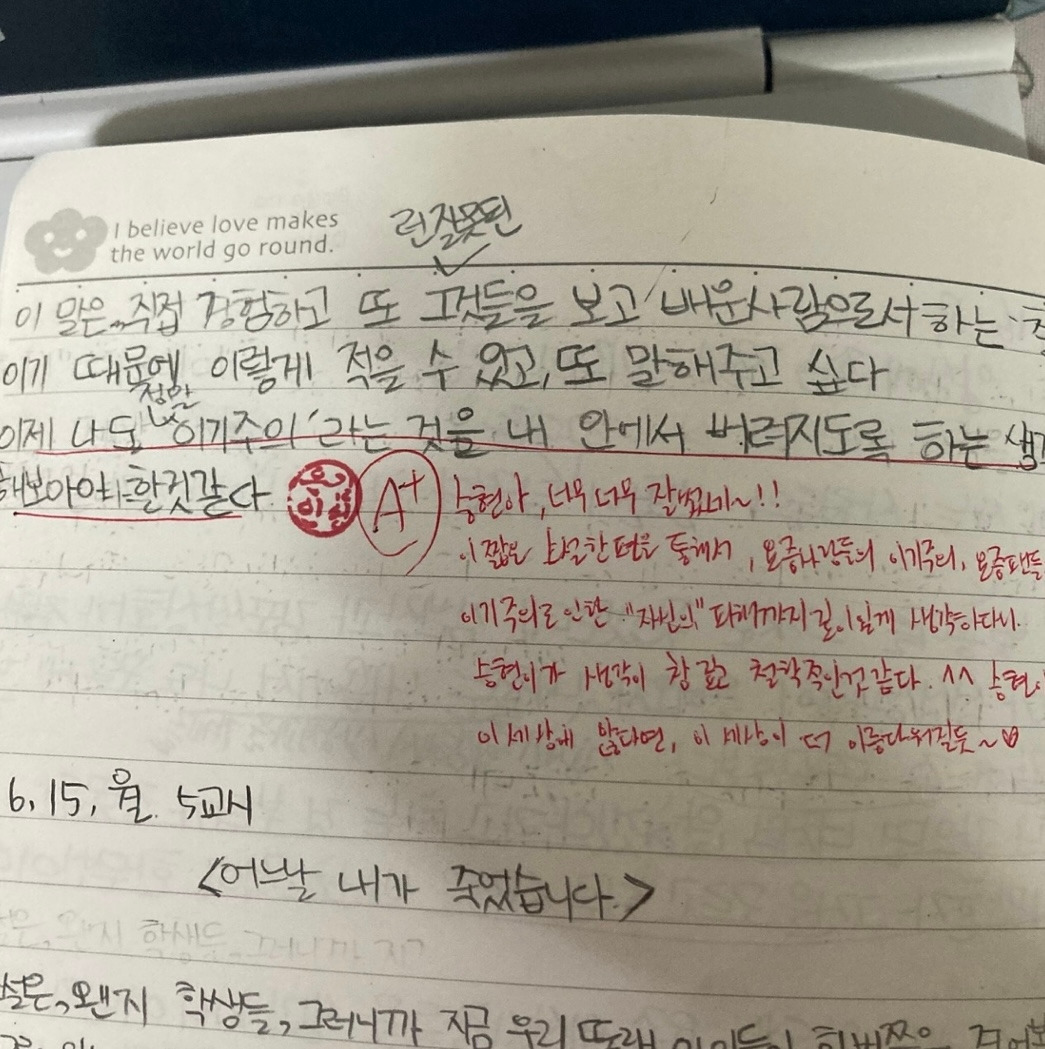 I believe love makes
the world go round.
런 잘못된
이 말은, 직접 경험하고 또 그것들을 보고 배운사람으로서 하는
이기 때문에 이렇게 적을 수 있었고, 또 말해주고 싶다
정말
이제 나도 '이기주의'라는 것을 내 안에서 버려지도록 하는 생
해보아야 할것같다.
A+ 승현아, 너무 너무 잘썼네~!!
이 짧은 소설 한 편을 통해서, 요즘사람들의 이기주의, 요즘
이기주의로 인한 "자신의" 피해까지 깊이있게 생각하다니.
승현이가 생각이 참 깊고 철학적인것 같다. ^^ 승현
이 세상에 많다면, 이 세상이 더 아름다워질듯~♡
6, 15, 월. 5교시
<어느날 내가 죽었습니다.>
설은, 왠지 학생들, 그러니까 지금 우리 또래 아이들이 한번쯤은